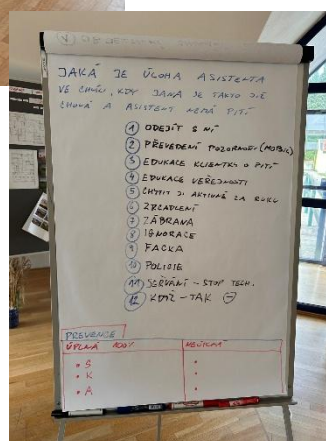 JAKÁ JE ÚLOHA ASISTENTA
VE CHVÍLI, KDY JANA SE TAKTO
CHOVÁ A ASISTENT NEMÁ PITÍ
① ODEJÍT S NÍ
② PŘEVEDENÍ POZORNOSTI (MOBIL)
③ EDUKACE KLIENTKY O PITÍ
④ EDUKACE VEŘEJNOSTI
⑤ CHYTIT JI AKTIVNĚ ZA RUKU
⑥ ZRCADLENÍ
⑦ ZÁBRANA
⑧ IGNORACE
⑨ FACKA
⑩ POLICIE
⑪ SEŘVÁNÍ - STOP TECH.
⑫ KDYŽ - TAK ⊖
PREVENCE
ÚPLNÁ
• S
• K
• A